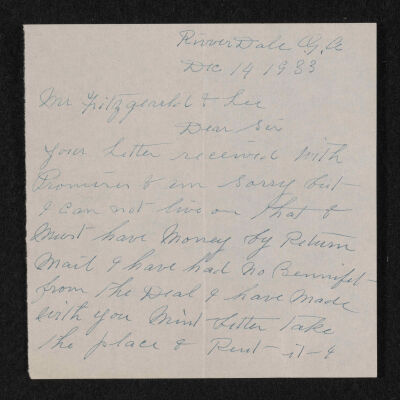 River Dale Ga
Dec 14 1933
Mr Fitzgerald & Lee
Dear Sir
Your letter received with
Promises & am sorry but
I can not live on that &
Must have Money by Return
Mail I have had no Bennifet
from the Deal I have Made
with you Mint better Take
the place & Rent it &